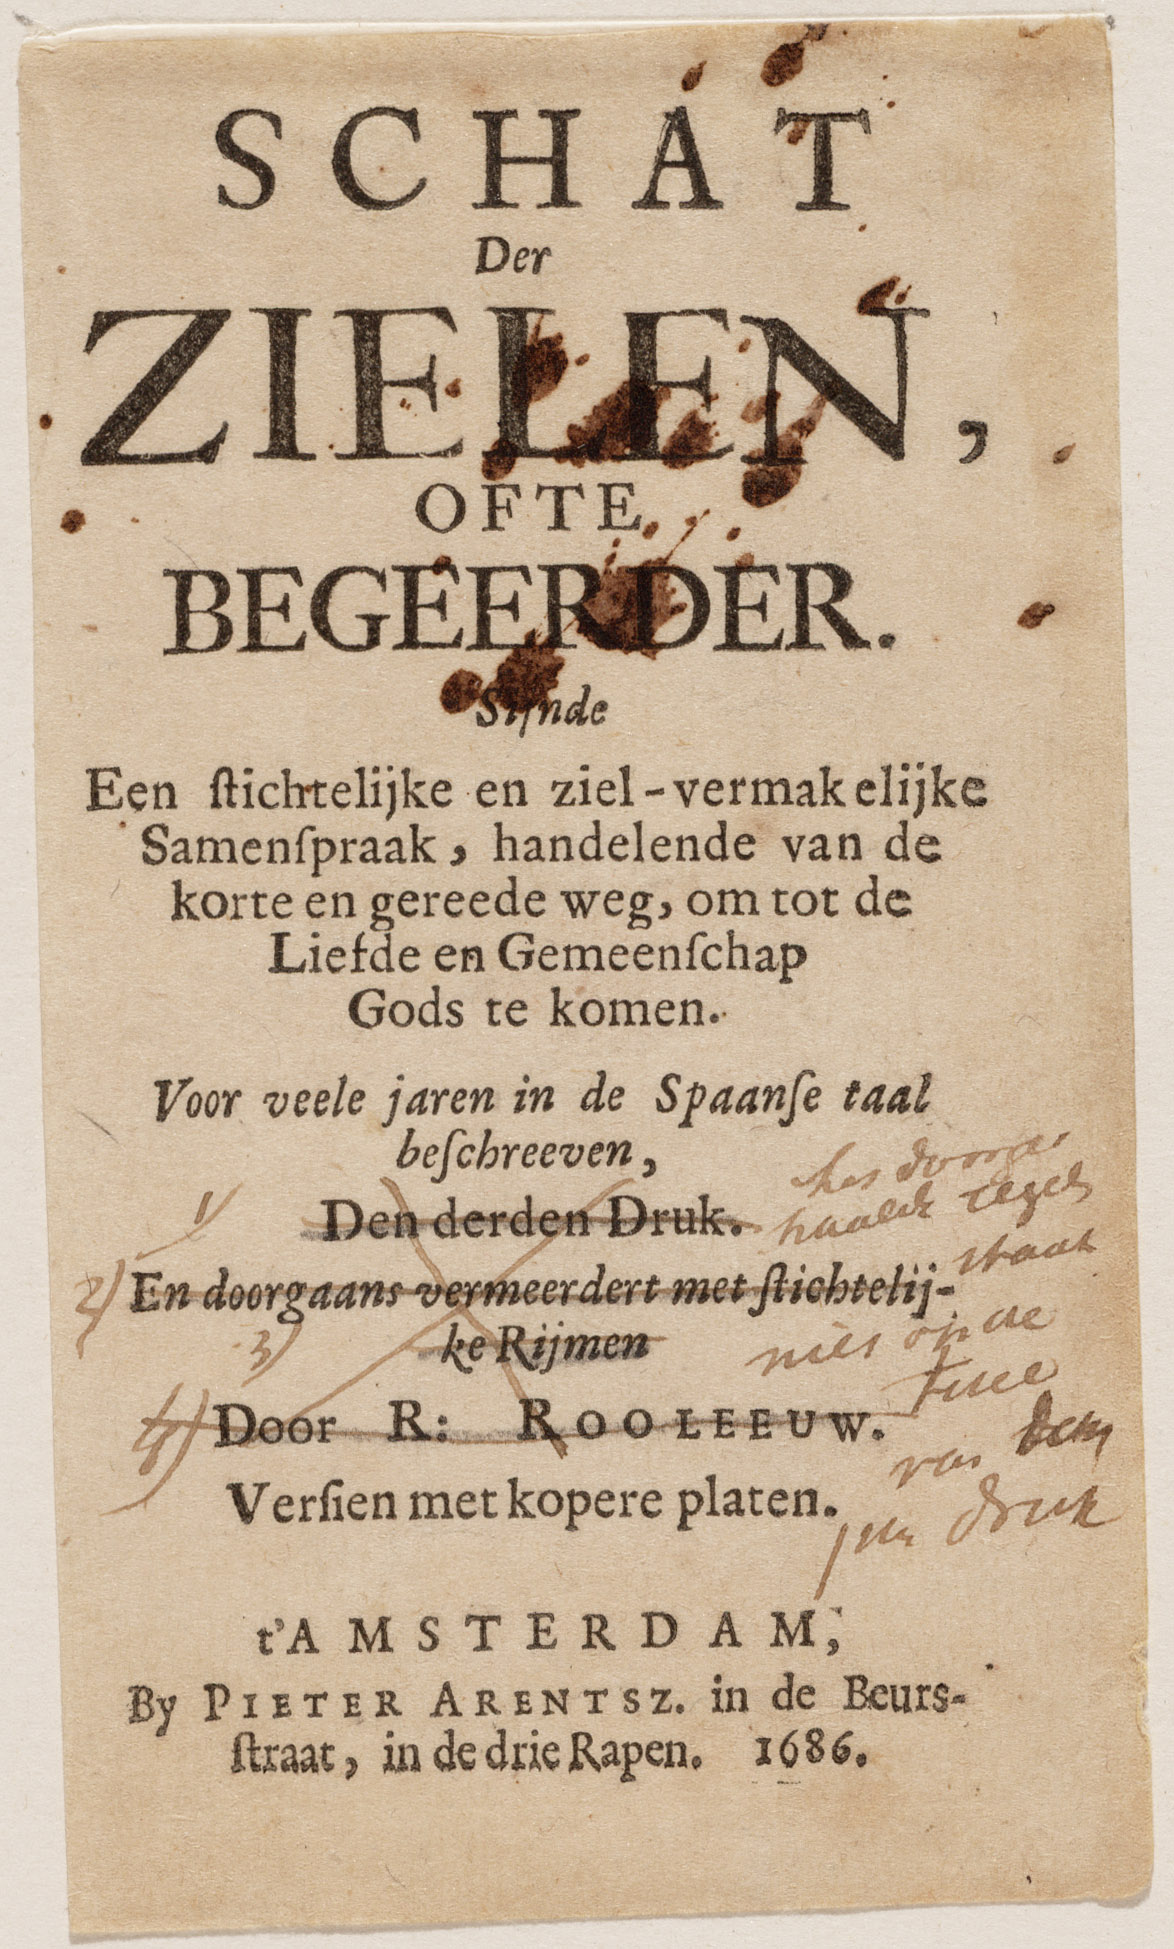 SCHAT
Der
ZIELEN,
OFTE
BEGEERDER.
Sijnde
Een ſtichtelijke en ziel-vermakelijke
Samenſpraak, handelende van de
korte en gereede weg, om tot de
Liefde en Gemeenſchap
Gods te komen.
Voor veele jaren in de Spaanſe taal
beſchreeven,
1) Den derden Druk.
2) En doorgaans vermeerdert met ſtichtelij-
3) ke Rijmen
4) Door R: ROOLEEUW.
Verſien met kopere platen.
het doorge
haalde regels
staat
niet op de
titel
van den
druk
t'AMSTERDAM,
By PIETER ARENTSZ. in de Beurs-
ſtraat, in de drie Rapen. 1686.